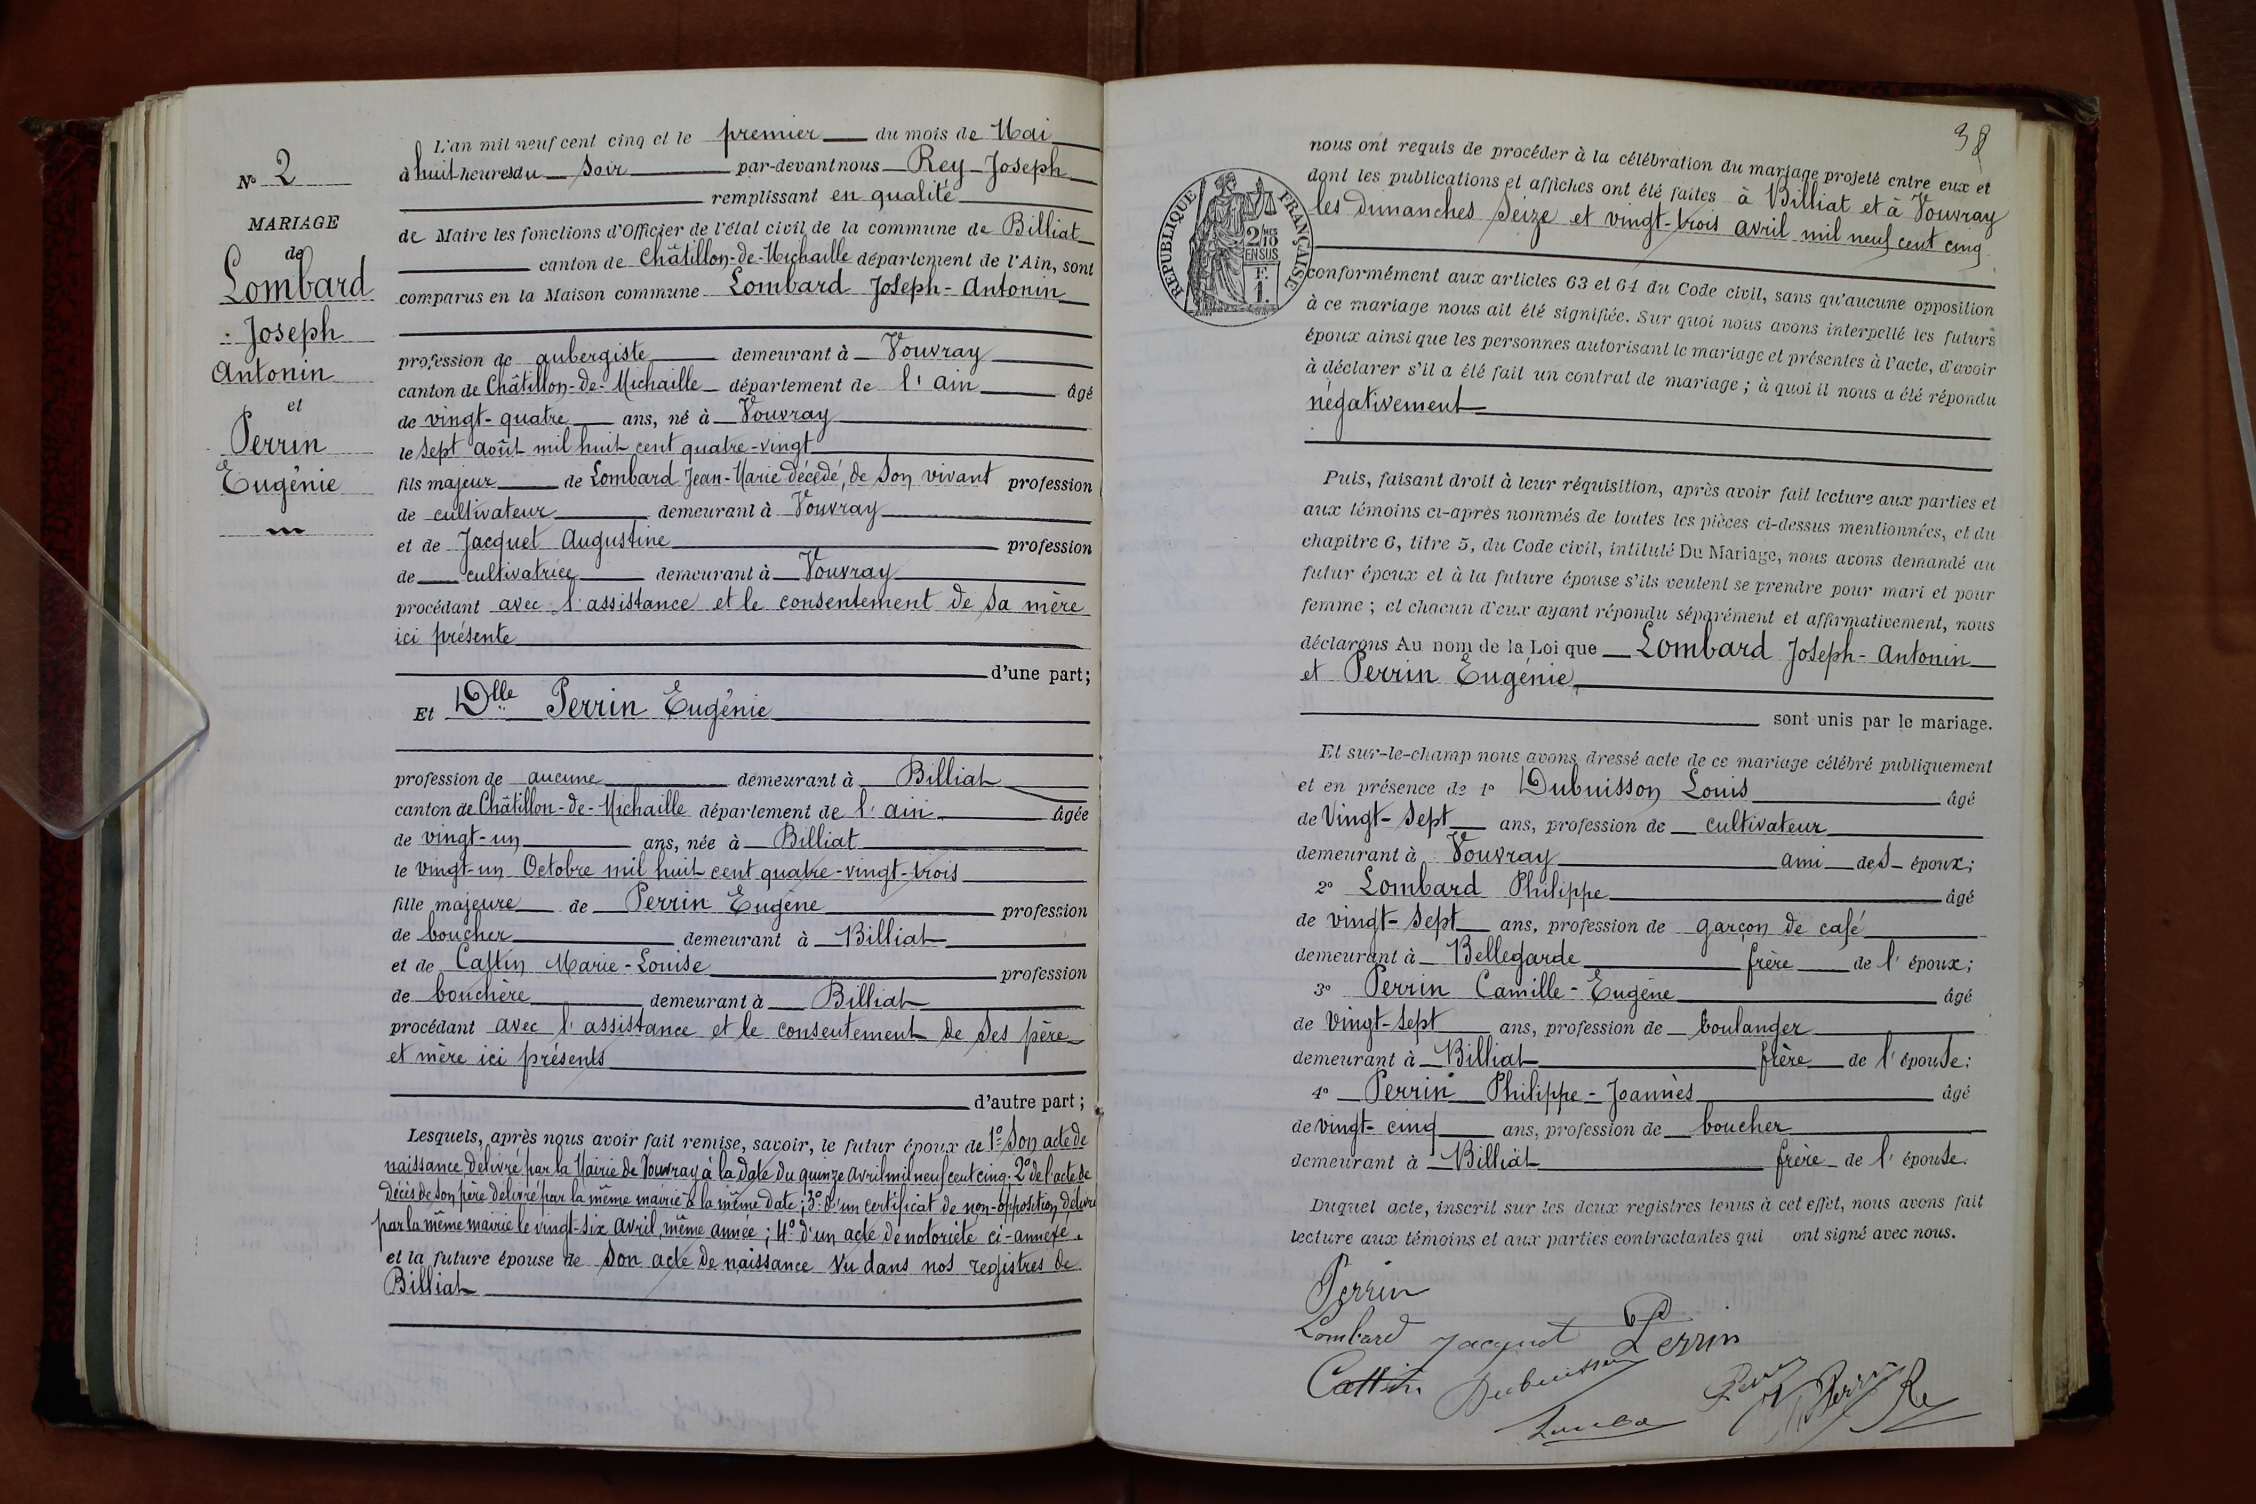 N° 2
MARIAGE
de
Lombard
Joseph
Antonin
et
Perrin
Eugénie
L'an mil neuf cent cinq et le premier du mois de Mai
à huit heures du Soir par-devant nous Rey Joseph
remplissant en qualité
de Maire les fonctions d'Officier de l'état civil de la commune de Billiat
canton de Châtillon-de-Michaille département de l'Ain, sont
comparus en la Maison commune Lombard Joseph-Antonin
profession de aubergiste demeurant à Vouvray
canton de Châtillon-de-Michaille département de l'ain âgé
de vingt-quatre ans, né à Vouvray
le Sept août mil huit cent quatre-vingt
fils majeur de Lombard Jean-Marie décédé, de Son vivant profession
de cultivateur demeurant à Vouvray
et de Jacquet Augustine profession
de cultivatrice demeurant à Vouvray
procédant avec l'assistance et le consentement de Sa mère
ici présente
d'une part;
Et Dlle Perrin Eugénie
profession de aucune demeurant à Billiat
canton de Châtillon-de-Michaille département de l'ain âgée
de vingt-un ans, née à Billiat
le vingt-un Octobre mil huit cent quatre-vingt-trois
fille majeure de Perrin Eugène profession
de boucher demeurant à Billiat
et de Cattin Marie-Louise profession
de bouchère demeurant à Billiat
procédant avec l'assistance et le consentement de Ses père
et mère ici présents
d'autre part;
Lesquels, après nous avoir fait remise, savoir, le futur époux de 1° Son acte de
naissance délivré par la Mairie de Vouvray à la date du quinze avril mil neuf cent cinq; 2° de l'acte de
décès de son père délivré par la même mairie à la même date; 3° d'un certificat de non-opposition délivré
par la même mairie le vingt-six avril, même année; 4° d'un acte de notoriété ci-annexé.
et la future épouse de Son acte de naissance vu dans nos registres de
Billiat
38
RÉPUBLIQUE FRANÇAISE
2/10 EN SUS
F.
1.
nous ont requis de procéder à la célébration du mariage projeté entre eux et
dont les publications et affiches ont été faites à Billiat et à Vouvray
les dimanches Seize et vingt-trois avril mil neuf cent cinq
conformément aux articles 63 et 64 du Code civil, sans qu'aucune opposition
à ce mariage nous ait été signifiée. Sur quoi nous avons interpellé les futurs
époux ainsi que les personnes autorisant le mariage et présentes à l'acte, d'avoir
à déclarer s'il a été fait un contrat de mariage; à quoi il nous a été répondu
négativement
Puis, faisant droit à leur réquisition, après avoir fait lecture aux parties et
aux témoins ci-après nommés de toutes les pièces ci-dessus mentionnées, et du
chapitre 6, titre 5, du Code civil, intitulé Du Mariage, nous avons demandé au
futur époux et à la future épouse s'ils veulent se prendre pour mari et pour
femme; et chacun d'eux ayant répondu séparément et affirmativement, nous
déclarons Au nom de la Loi que Lombard Joseph-Antonin
et Perrin Eugénie
sont unis par le mariage.
Et sur-le-champ nous avons dressé acte de ce mariage célébré publiquement
et en présence de 1° Dubuisson Louis âgé
de Vingt-Sept ans, profession de cultivateur
demeurant à Vouvray ami des époux;
2° Lombard Philippe âgé
de vingt-Sept ans, profession de garçon de café
demeurant à Bellegarde frère de l'époux;
3° Perrin Camille-Eugène âgé
de Vingt-Sept ans, profession de boulanger
demeurant à Billiat frère de l'épouse;
4° Perrin Philippe-Joannès âgé
de vingt-cinq ans, profession de boucher
demeurant à Billiat frère de l'épouse.
Duquel acte, inscrit sur les deux registres tenus à cet effet, nous avons fait
lecture aux témoins et aux parties contractantes qui ont signé avec nous.
Perrin
Lombard Jacquet Perrin
Cattin Dubuisson Perrin Rey